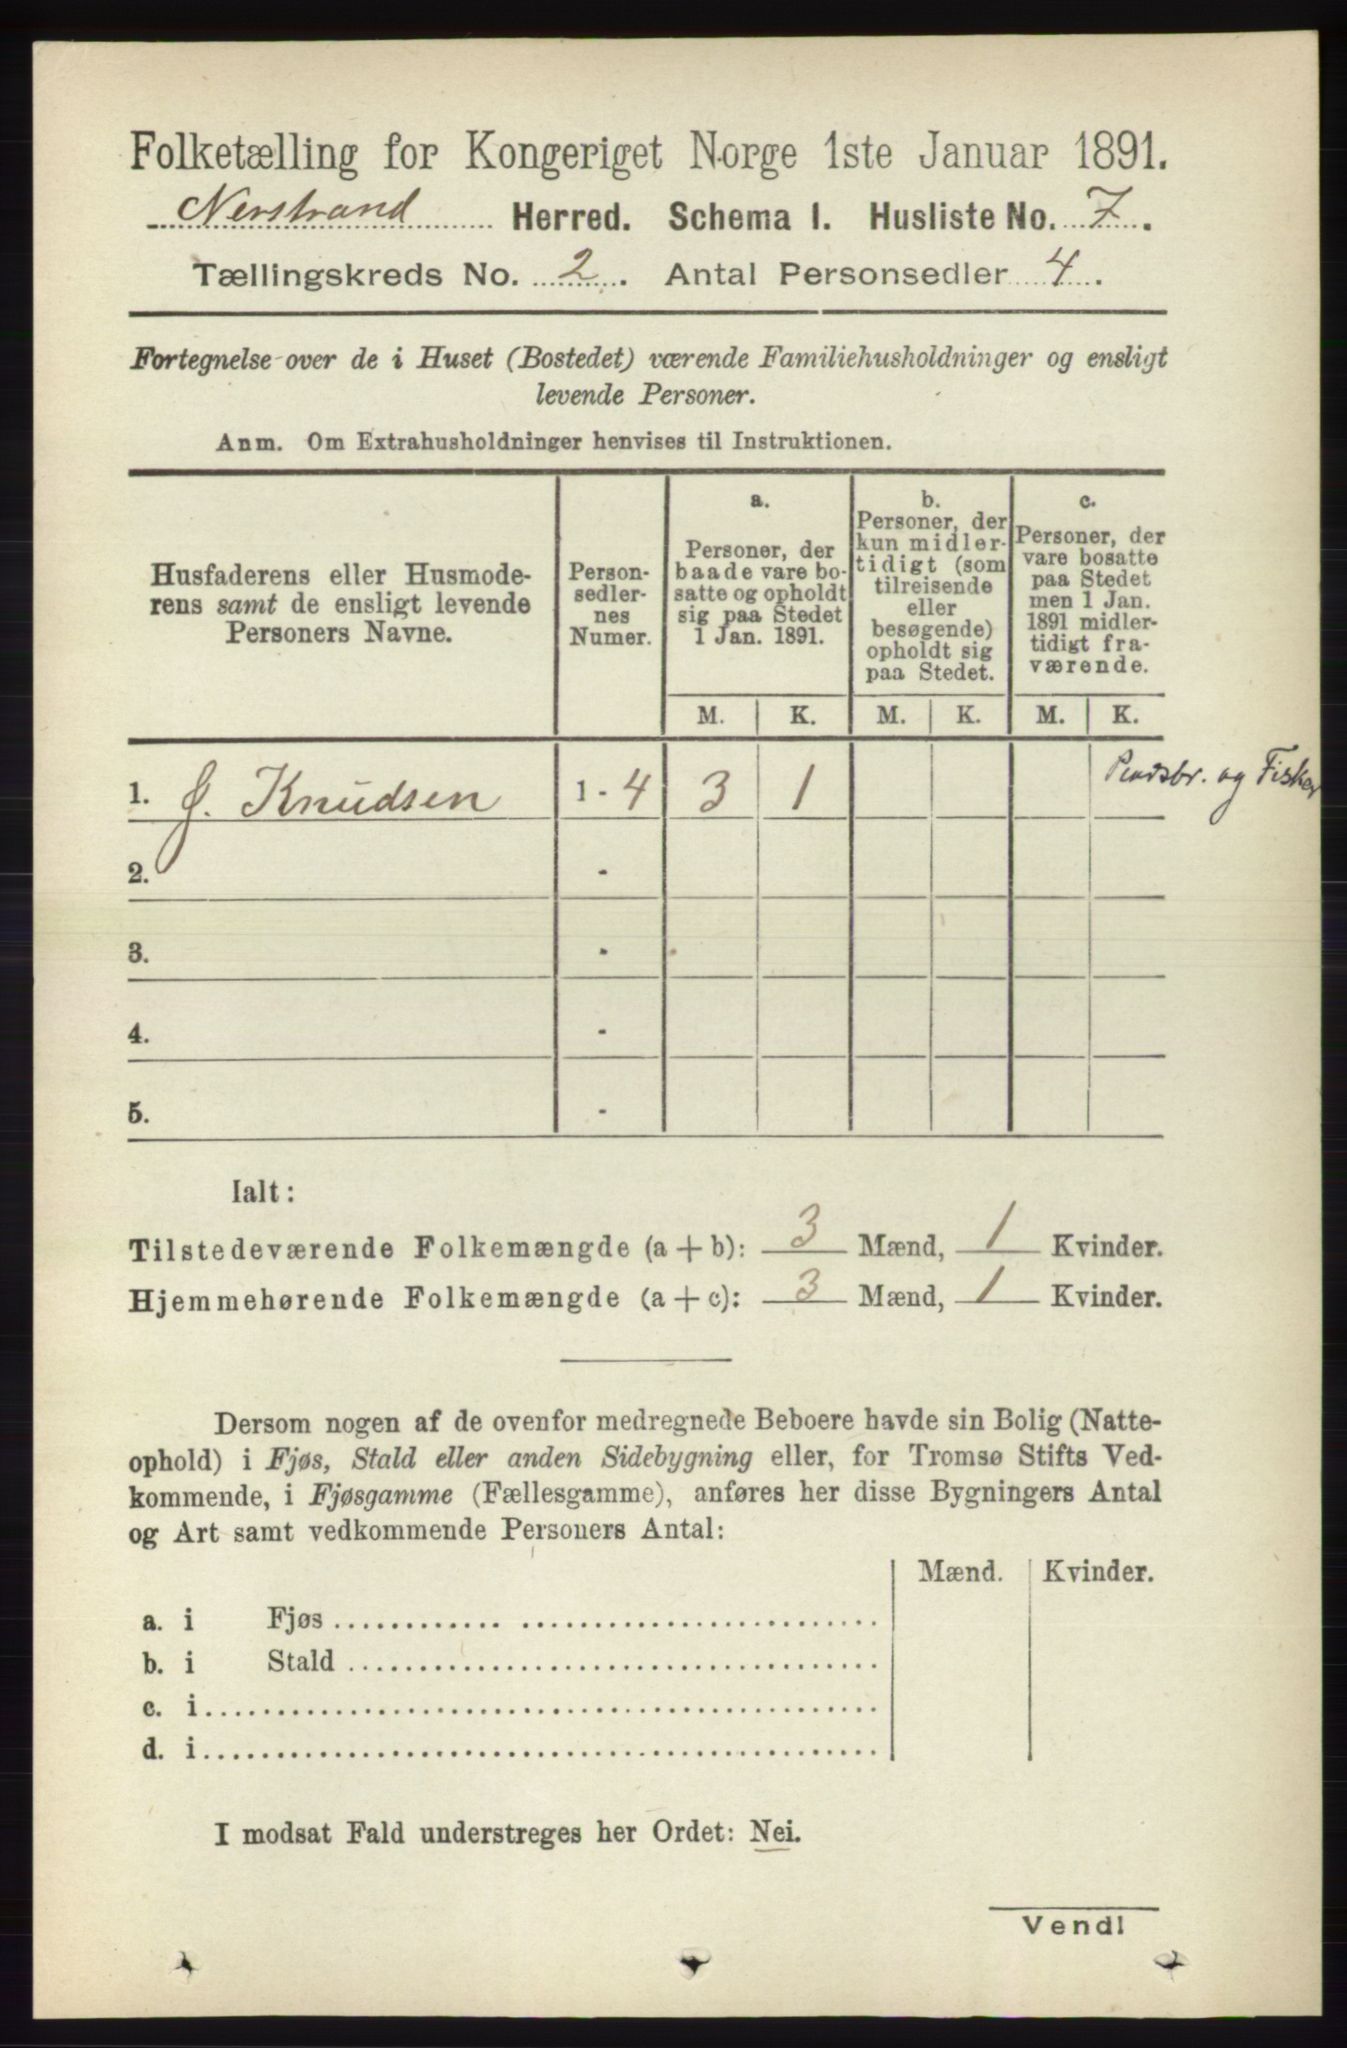 Folketælling for Kongeriget Norge 1ste Januar 1891.
Nerstrand Herred. Schema I. Husliste No. 7.
Tællingskreds No. 2. Antal Personsedler 4.
Fortegnelse over de i Huset (Bostedet) værende Familiehusholdninger og ensligt
levende Personer.
Anm. Om Extrahusholdninger henvises til Instruktionen.
Husfaderens eller Husmode-
rens samt de ensligt levende
Personers Navne.
Person-
sedler-
nes
Numer.
a.
Personer, der
baade vare bo-
satte og opholdt
sig paa Stedet
1 Jan. 1891.
b.
Personer, der
kun midler-
tidigt (som
tilreisende
eller
besøgende)
opholdt sig
paa Stedet.
c.
Personer, der
vare bosatte
paa Stedet
men 1 Jan.
1891 midler-
tidigt fra-
værende.
M. K. M. K. M. K.
1. Ø. Knudsen 1 - 4 3 1 og Fisker
2. -
3. -
4. -
5. -
Ialt:
Tilstedeværende Folkemængde (a + b): 3 Mænd, 1 Kvinder.
Hjemmehørende Folkemængde (a + c): 3 Mænd, 1 Kvinder.
Dersom nogen af de ovenfor medregnede Beboere havde sin Bolig (Natte-
ophold) i Fjøs, Stald eller anden Sidebygning eller, for Tromsø Stifts Ved-
kommende, i Fjøsgamme (Fællesgamme), anføres her disse Bygningers Antal
og Art samt vedkommende Personers Antal:
Mænd. Kvinder.
a. i Fjøs
b. i Stald
c. i
d. i
I modsat Fald understreges her Ordet: Nei.
Vend!